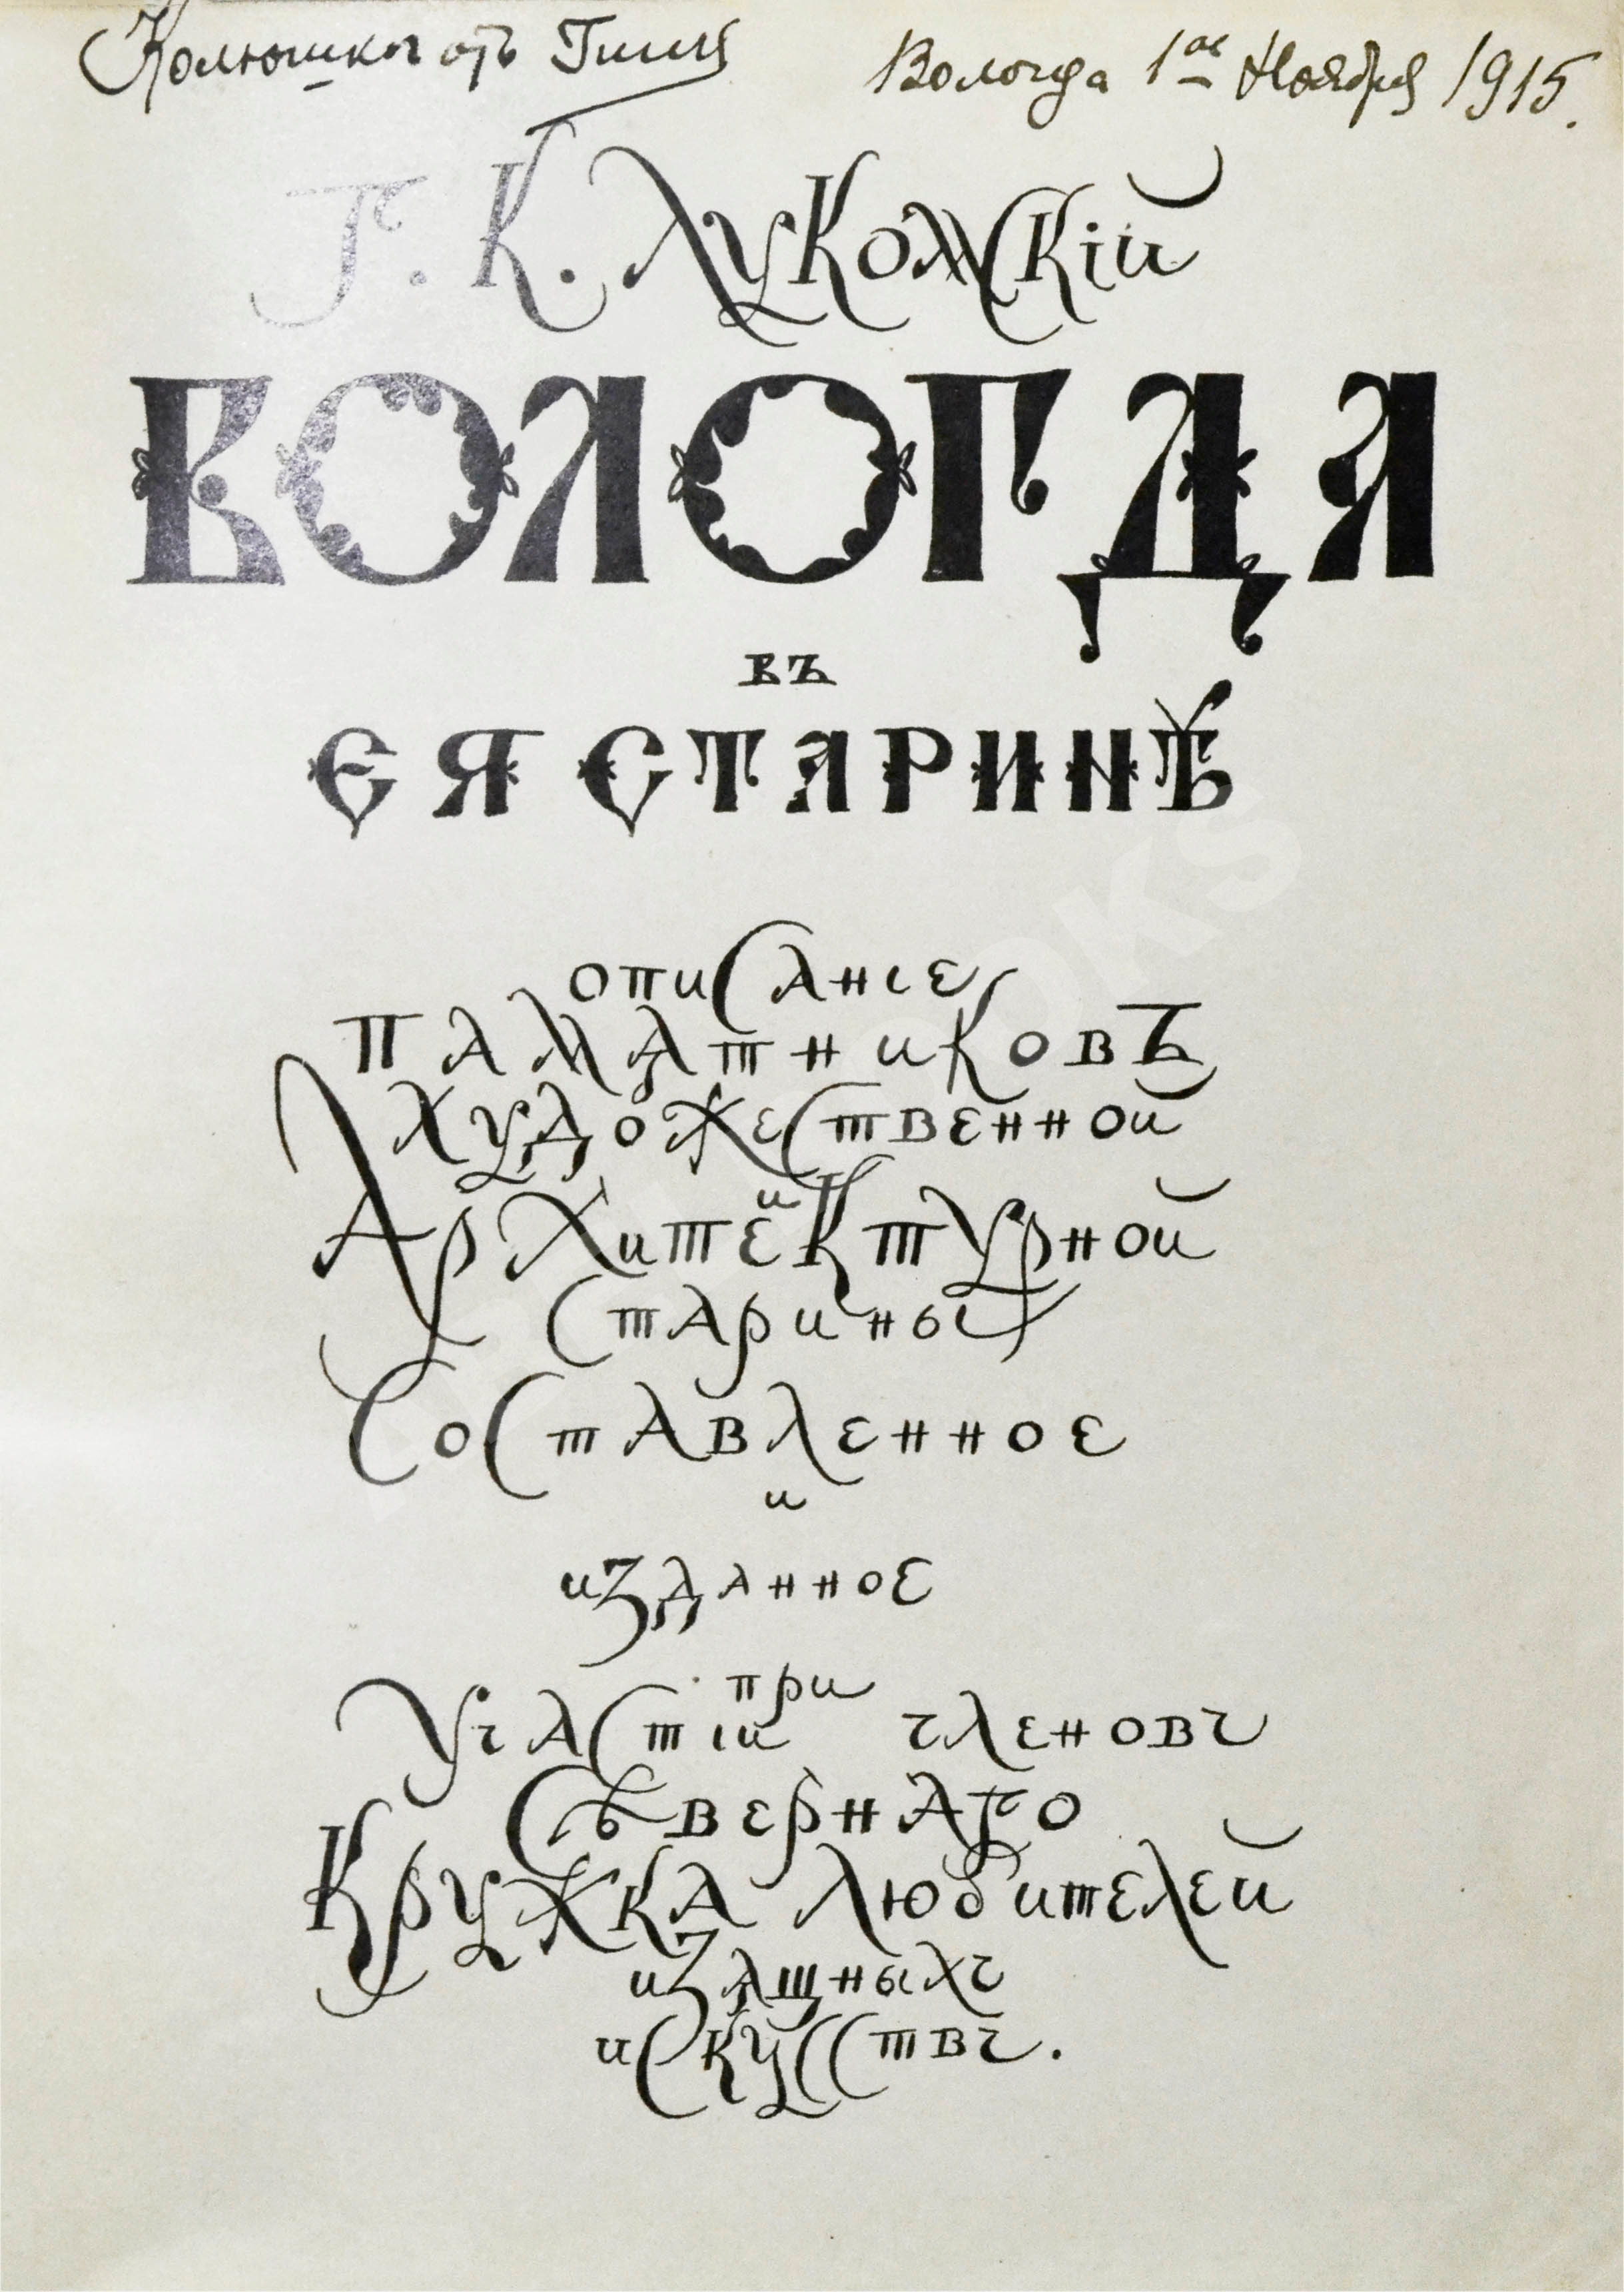 Колюшка отъ Вологда 1ое Ноября 1915.
Г. К. Лукомскій
ВОЛОГДА
въ
ЕЯ СТАРИНѢ
описаніе
памятниковъ
художественной
и
архитектурной
старины
составленное
и
изданное
при
участіи членовъ
Сѣвернаго
Кружка Любителей
изящныхъ
искусствъ.